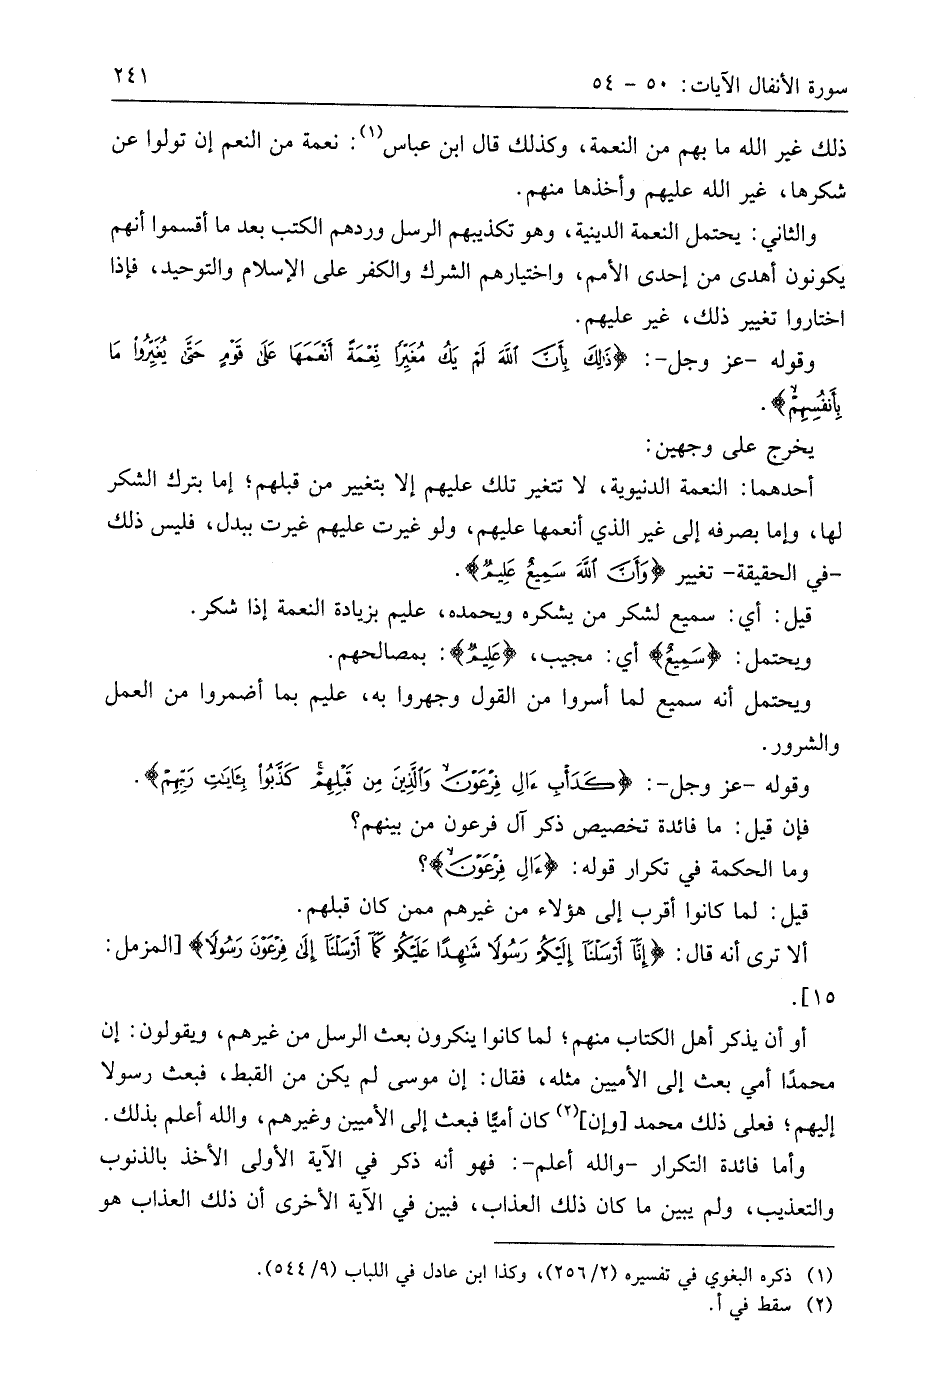 سورة الأنفال الآيات: ٥٠ - ٥٤
٢٤١
ذلك غير الله ما بهم من النعمة، وكذلك قال ابن عباس(١): نعمة من النعم إن تولوا عن
شكرها، غير الله عليهم وأخذها منهم.
والثاني: يحتمل النعمة الدينية، وهو تكذيبهم الرسل وردهم الكتب بعد ما أقسموا أنهم
يكونون أهدى من إحدى الأمم، واختيارهم الشرك والكفر على الإسلام والتوحيد، فإذا
اختاروا تغيير ذلك، غير عليهم.
وقوله -عز وجل-: ﴿ذَٰلِكَ بِأَنَّ ٱللَّهَ لَمْ يَكُ مُغَيِّرًا نِّعْمَةً أَنْعَمَهَا عَلَىٰ قَوْمٍ حَتَّىٰ يُغَيِّرُوا۟ مَا
بِأَنفُسِهِمْۙ﴾.
يخرج على وجهين:
أحدهما: النعمة الدنيوية، لا تتغير تلك عليهم إلا بتغيير من قبلهم؛ إما بترك الشكر
لها، وإما بصرفه إلى غير الذي أنعمها عليهم، ولو غيرت عليهم غيرت ببدل، فليس ذلك
-في الحقيقة- تغيير ﴿وَأَنَّ ٱللَّهَ سَمِيعٌ عَلِيمٌ﴾.
قيل: أي: سميع لشكر من يشكره ويحمده، عليم بزيادة النعمة إذا شكر.
ويحتمل: ﴿سَمِيعٌ﴾ أي: مجيب، ﴿عَلِيمٌ﴾: بمصالحهم.
ويحتمل أنه سميع لما أسروا من القول وجهروا به، عليم بما أضمروا من العمل
والشرور.
وقوله -عز وجل-: ﴿كَدَأْبِ ءَالِ فِرْعَوْنَۙ وَٱلَّذِينَ مِن قَبْلِهِمْۚ كَذَّبُوا۟ بِـَٔايَـٰتِ رَبِّهِمْ﴾.
فإن قيل: ما فائدة تخصيص ذكر آل فرعون من بينهم؟
وما الحكمة في تكرار قوله: ﴿ءَالِ فِرْعَوْنَۙ﴾؟
قيل: لما كانوا أقرب إلى هؤلاء من غيرهم ممن كان قبلهم.
ألا ترى أنه قال: ﴿إِنَّآ أَرْسَلْنَآ إِلَيْكُمْ رَسُولًا شَـٰهِدًا عَلَيْكُمْ كَمَآ أَرْسَلْنَآ إِلَىٰ فِرْعَوْنَ رَسُولًا﴾ [المزمل:
١٥].
أو أن يذكر أهل الكتاب منهم؛ لما كانوا ينكرون بعث الرسل من غيرهم، ويقولون: إن
محمدًا أمي بعث إلى الأميين مثله، فقال: إن موسى لم يكن من القبط، فبعث رسولا
إليهم؛ فعلى ذلك محمد [وإن](٢) كان أميًّا فبعث إلى الأميين وغيرهم، والله أعلم بذلك.
وأما فائدة التكرار -والله أعلم-: فهو أنه ذكر في الآية الأولى الأخذ بالذنوب
والتعذيب، ولم يبين ما كان ذلك العذاب، فبين في الآية الأخرى أن ذلك العذاب هو
(١) ذكره البغوي في تفسيره (٢٥٦/٢)، وكذا ابن عادل في اللباب (٥٤٤/٩).
(٢) سقط في أ.